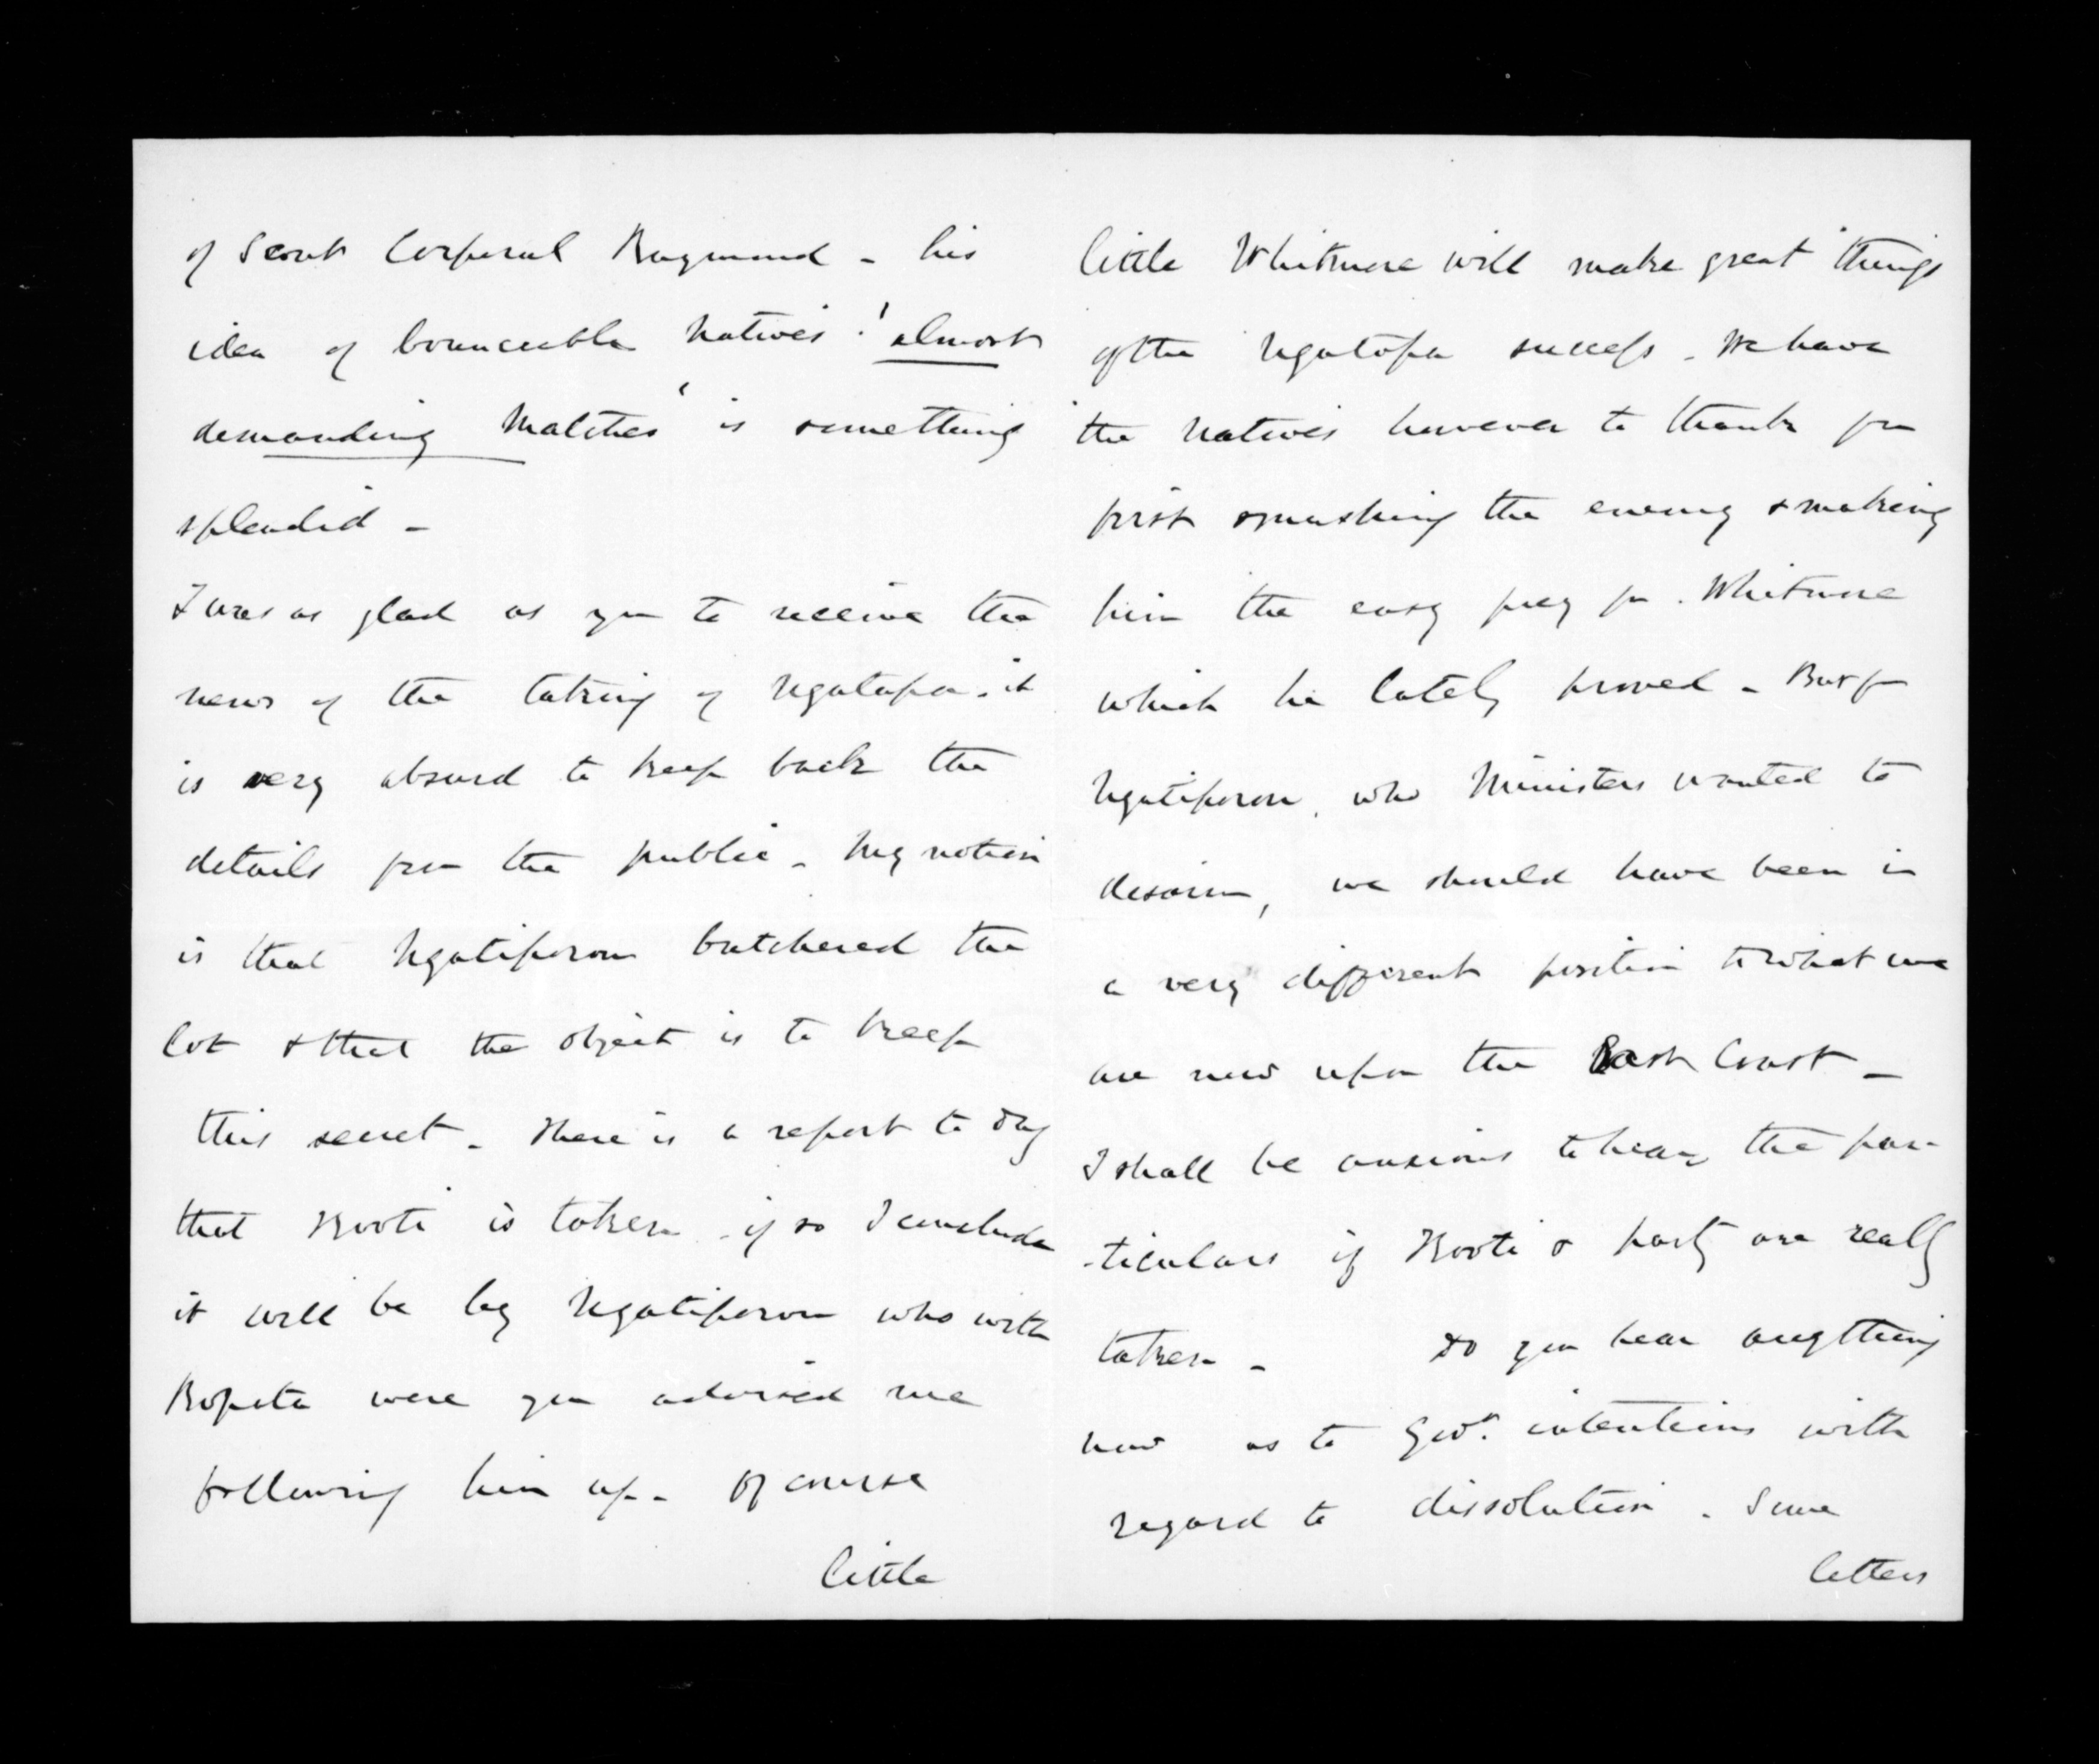 of Scout Corporal Raymond - his
idea of bounceable Natives! 'almost
demanding Matches' is something
splendid -
I was as glad as you to receive the
news of the taking of Ngatapa - it
is very absurd to keep back the
details from the public - My notion
is that Ngatiporou butchered the
lot & that the object is to keep
this secret - There is a report to day
that Kooti is taken - if so I conclude
it will be by Ngatiporou who with
Ropata were you advised me
following him up - Of course
little
little Whitmore will make great things
of the Ngatapa success - We have
the Natives however to thank for
first smashing the enemy & making
him the easy prey for Whitmore
which he lately proved - But for
Ngatiporou, who Ministers wanted to
disarm, we should have been in
a very different position to what we
are now upon the East Coast -
I shall be anxious to hear the par-
-ticulars if Kooti & party are really
taken - Do you hear anything
now as to Govt. intentions with
regard to dissolution - Some
letters